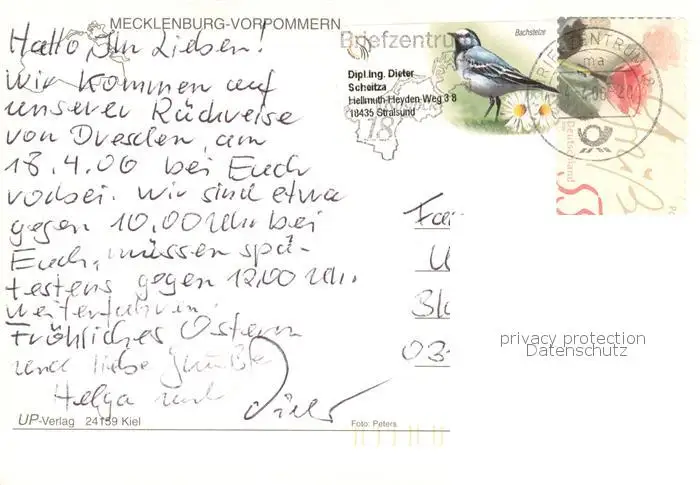 MECKLENBURG-VORPOMMERN
Hallo Ihr Lieben!
Wir kommen auf
unserer Rückreise
von Dresden am
18.4.06 bei Euch
vorbei. Wir sind etwa
gegen 10.00 Uhr bei
Euch, müssen spä-
testens gegen 12.00 Uhr
weiterfahren.
Fröhliches Ostern
und liebe Grüße
Helga und Dieter
UP-Verlag 24159 Kiel
Foto: Peters
Briefzentrum
18
Dipl.Ing. Dieter
Scheitza
Hellmuth-Heyden-Weg 3 8
18435 Stralsund
Bachstelze
BRIEFZENTRUM 18
ma
Deutschland
Fa
Bl
03
privacy protection
Datenschutz